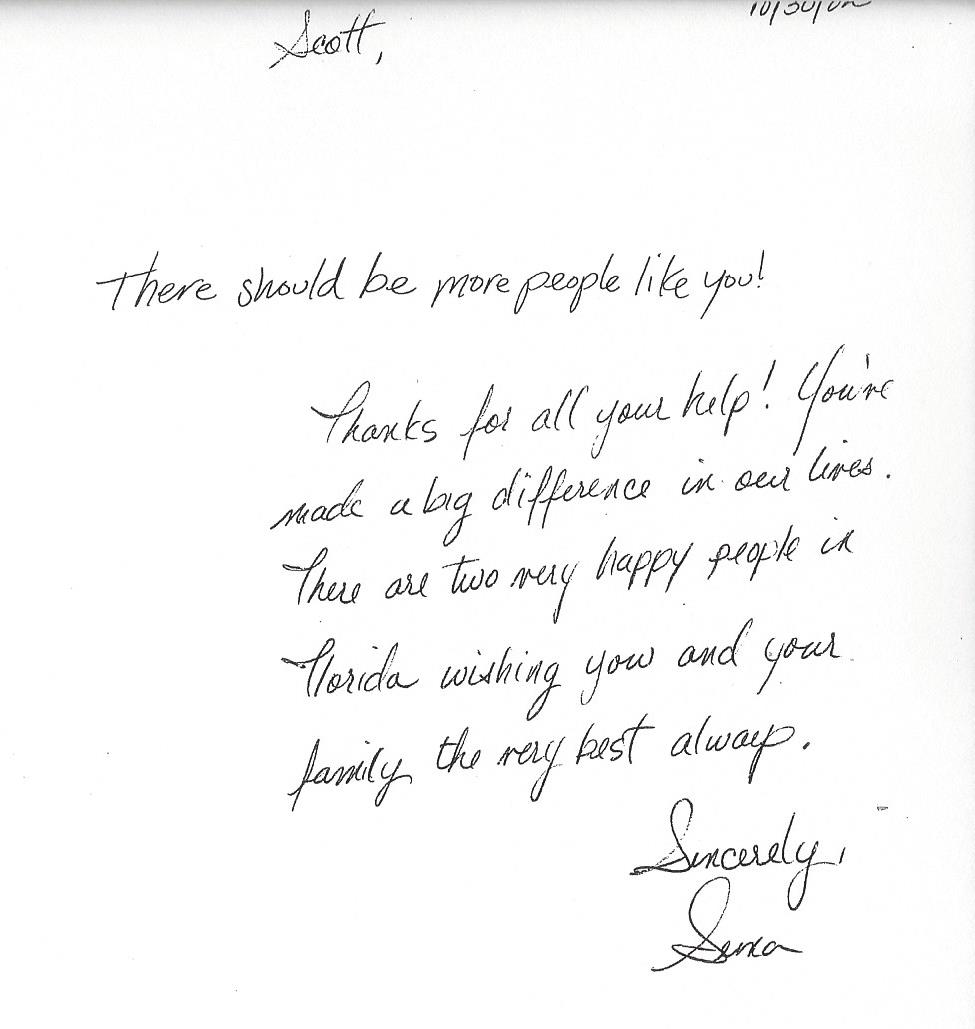 Scott,
There should be more people like you!
Thanks for all your help! You've
made a big difference in our lives.
There are two very happy people in
Florida wishing you and your
family the very best always.
Sincerely,